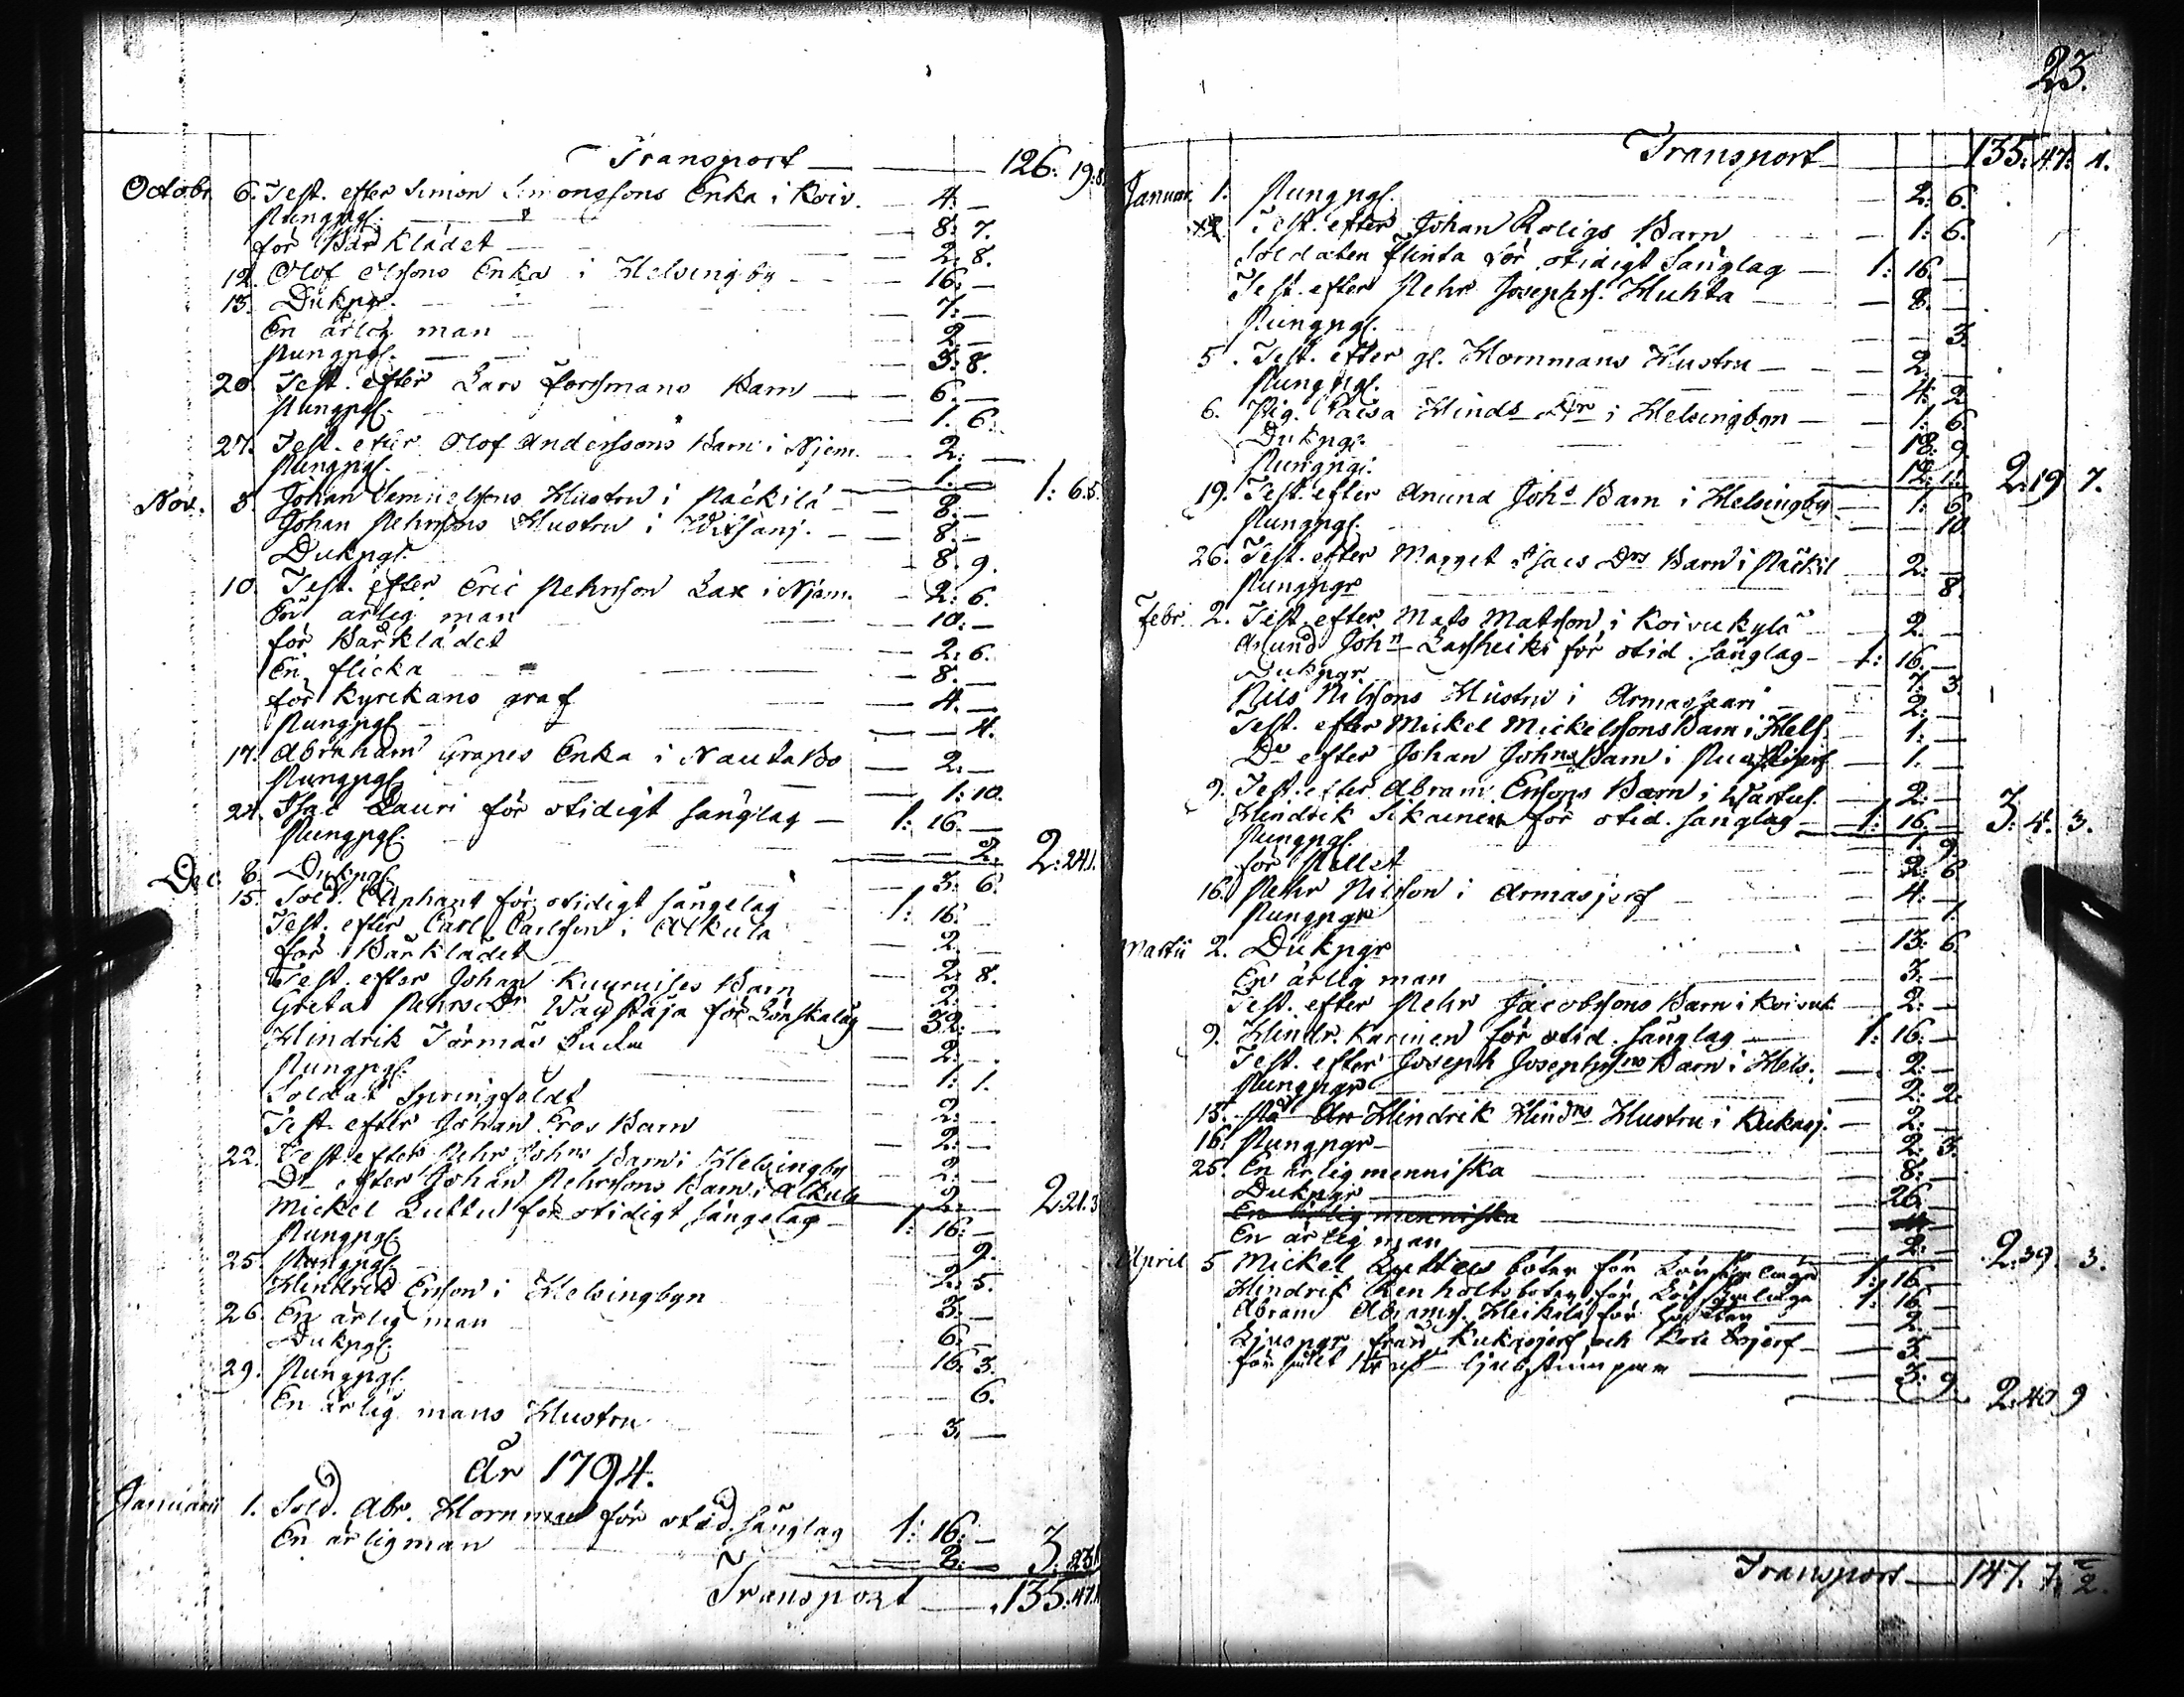 Transport — 126. 19. 8.
Octobr. 6. Test. efter Simon Simonssons Enka i Koiv. — 4. —
Pungpgr. — 8. 7.
för Bårklädet — 2. 8.
12. Olof Olssons Enka i Helsingby — 16. —
13. Dukpgr. — 7. —
En ärlig man — 2. —
Pungpgr. — 3. 8.
20. Test. efter Lars Forssmans Barn — 6. —
Pungpgr. — 1. 6.
27. Test. efter Olof Anderssons Barn i Njem. — 2. —
Pungpgr. — 1. — 1: 6. 5.
Nov. 3. Johan Samuelssons Hustru i Päckilä — 8. —
Johan Pehrssons Hustru i Witsanj. — 8. —
Dukpgr. — 8. 9.
10. Test. efter Eric Pehrsson Lax i Njem. — 2. 6.
En ärlig man — 10. —
för Bårklädet — 2. 6.
En flicka — 8. —
för Kyrckans graf — 4. —
Pungpgr. — 4.
17. Abraham Grapes Enka i Nautabo — 2. —
Pungpgr. — 1: 10.
24. Isac Lauri för otidigt sänglag — 1: 16. —
Pungpgr. — 2. 2: 24. 1.
Dec. 8. Dukpgr. — 3. 6.
15. Sold. Elephant för otidigt sängelag — 1: 16.
Test. efter Carl Carlsson i Alkula — 2. —
för Bårklädet — 2. 8.
Test. efter Johan Barn — 2. —
Greta Pehrs Dr för Lönskaläg — 32. —
Hindrik Törmäs — 2. —
Pungpgr. — 1: 1.
Soldat Springfeldt — 2. —
Test. efter Johan Eros Barn — 2. —
22. Test. efter Pehr Johns Barn i Helsingby — 2. —
Do efter Johan Pehrssons Barn i Alkula — 2. — 2. 21. 3
Mickel Luttu för otidigt sängelag — 1: 16. —
Pungpgr. — 9.
25. Pungpgr. — 2. 5.
Hindrik Ersson i Helsingbyn — 3. —
26. En ärlig man — 6. —
Dukpgr. — 16. 3.
29. Pungpgr. — 6.
En ärlig mans Hustru — 3. —
År 1794.
Januarii 1. Sold. Abr. Hornman för otid. sänglag 1: 16. —
En ärlig man — 2. — 3.
Transport — 135. 47. 1.
23.
Transport — 135. 47. 1.
Januar. 1. Pungpgr. — 2. 6.
Test. efter Johan Roligs Barn — 1: 6.
Soldaten Flinta för otidigt sänglag — 1: 16. —
Test. efter Pehr Josephs. Huhta — 8. —
Pungpgr. — 3.
5. Test. efter gl. Hornmans Hustru — 2. —
Pungpgr. — 4. 2
6. Pig. Caisa Hinds Dr i Helsingbyn — 1: 6.
Dukpgr. — 18. 9.
Pungpgr. — 12. 11. 2. 19 7.
19. Test. efter Anund Johs Barn i Helsingby — 1: 6.
Pungpgr. — 10.
26. Test. efter Magget Isacs Drs Barn i Päckil — 2. —
Pungpgr — 8.
Febr. 2. Test. efter Mats Matsson i Koivukylä — 2. —
Anund John Lassheiki för otid. sänglag — 1: 16. —
Dukpgr — 7. 3.
Nils Nilssons Hustru i Armassaari — 2. —
Test. efter Mickel Mickelssons Barn i Hels. — 1. —
Do efter Johan Johns Barn i — 1. —
9. Test. efter Abram Ersons Barn i — 2. —
Hindrik Sikainen för otid. sänglag — 1: 16. — 3. 4. 3.
Pungpgr. — 1. 9
för — 2. 6
16. Pehr Nilsson i Armasjerf — 4. —
Pungpgr — 1.
Martii 2. Dukpgr — 13. 6.
En ärlig man — 3. —
Test. efter Pehr Jacobssons Barn i Koivuk — 2. —
9. Hindr. Karinen för otid. sänglag — 1: 16. —
Test. efter Joseph Josephss. Barn i Hels. — 2. —
Pungpgr — 2. 2.
15. Hindrik Hindrs Hustru i Kukasj. — 2. —
16. Pungpgr — 2. 3.
25. En ärlig menniska — 8. —
Dukpgr — 26. —
En ärlig menniska
En ärlig man — 2. — 2. 39. 3.
April 5 Mickel Luttus böter för — 1: 16. —
Hindrik Renholts böter för — 1: 16 —
Abram Abrams. Heikilä för — 2. —
Ljuspgr från Kukasjerf och — 3. —
för ljusstumpar — 3. 9. 2. 40 9
Transport — 147. 7. 2.